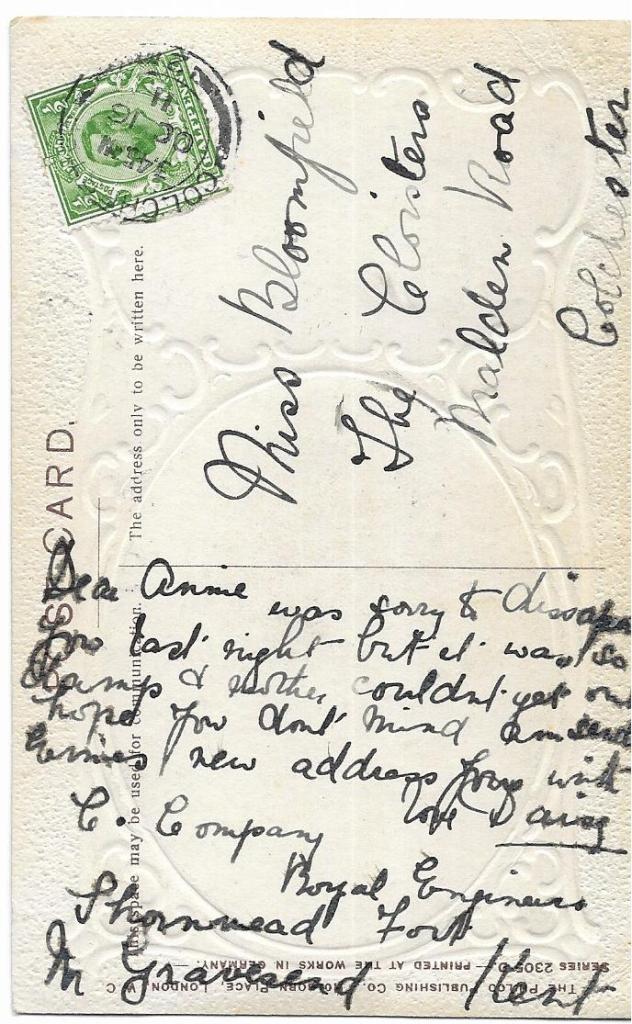 POST CARD.
The address only to be written here.
This space may be used for communication.
HALFPENNY
POSTAGE
COLCHESTER
3.45 PM
OC 16
11
Miss Bloomfield
The Cloisters
Malden Road
Colchester
Dear Annie
was sorry to dissap
you last night but it was so
damp & mother couldn't get out
hope you don't mind am send
Ernies new address yours with
love Daisy
C. Company
Royal Engineers
Shornmead Fort
Nr Gravesend Kent
THE PHILCO PUBLISHING CO. HOLBORN PLACE, LONDON, W.C
SERIES 2305 D — PRINTED AT THE WORKS IN GERMANY.